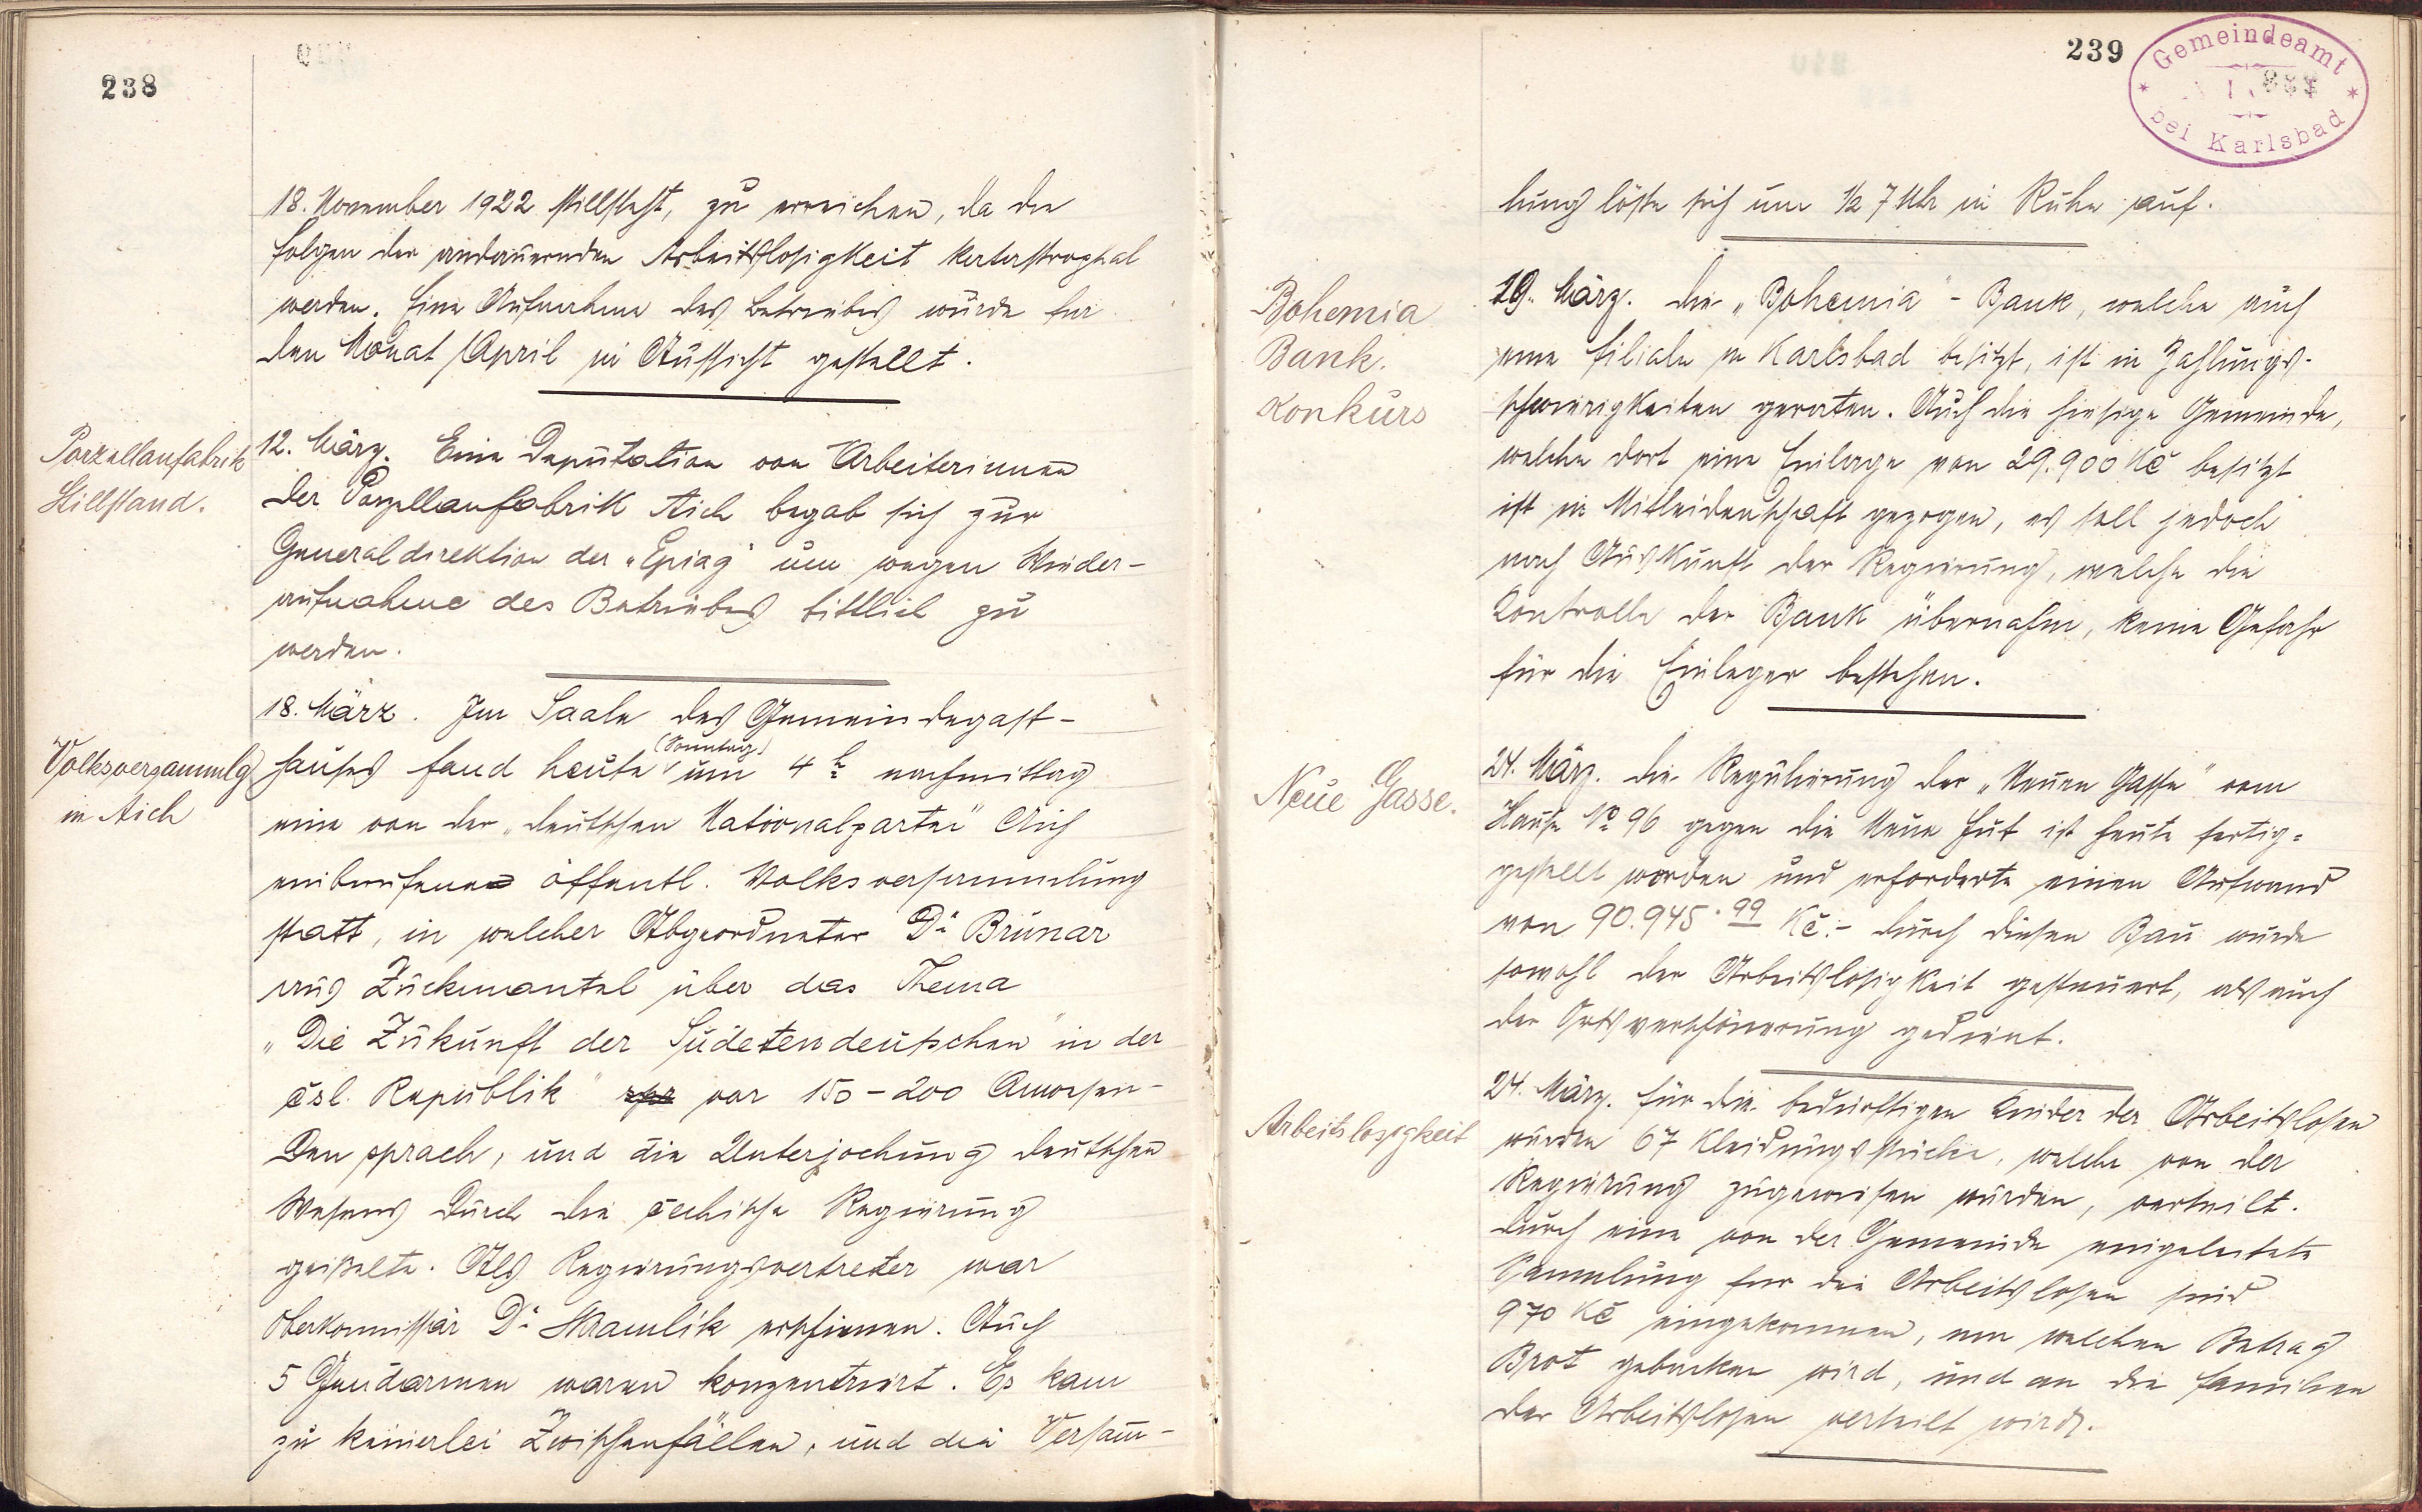 238
18. November 1922 stillsteht, zu erreichen, da die
Folgen der andauernden Arbeitslosigkeit katastrophal
werden. Eine Aufnahme des Betriebes wurde für
den Monat April in Aussicht gestellt.
Porzellanfabrik
Stillstand.
12. März. Eine Deputation von Arbeiterinnen
der Porzellanfabrik Aich begab sich zur
Generaldirektion der „Epiag" um wegen Wieder-
aufnahme des Betriebes bittlich zu
werden.
Volksversammlg
in Aich
18. März. Im Saale des Gemeindegast-
hauses fand heute (Sonntag) um 4 h nachmittag
eine von der „deutschen Nationalpartei" Aich
einberufene öffentl. Volksversammlung
statt, in welcher Abgeordneter Dr Brunar
aus Zuckmantel über das Thema
„Die Zukunft der Sudetendeutschen in der
čsl. Republik" vor 150-200 Anwesen-
den sprach, und die Unterjochung deutschen
Wesens durch die čechische Regierung
geißelte. Als Regierungsvertreter war
Oberkommissär Dr Kramlik erschienen. Auch
5 Gendarmen waren konzentriert. Es kam
zu keinerlei Zwischenfällen, und die Versam-
239
Gemeindeamt
bei Karlsbad
lung löste sich um 1/2 7 Uhr in Ruhe auf.
Bohemia
Bank.
Konkurs
19. März. Die „Bohemia" - Bank, welche auch
eine Filiale in Karlsbad besitzt, ist in Zahlungs-
schwierigkeiten geraten. Auch die hiesige Gemeinde,
welche dort eine Einlage von 29.900 Kč besitzt
ist in Mitleidenschaft gezogen, es soll jedoch
nach Auskunft der Regierung, welche die
Kontrolle der Bank übernahm, keine Gefahr
für die Einleger bestehen.
Neue Gasse.
24. März. Die Regulierung der „Neuen Gasse" vom
Hause No 96 gegen die Neue Hut ist heute fertig-
gestellt worden und erforderte einen Aufwand
von 90.945.99 Kč.- Durch diesen Bau wurde
sowohl der Arbeitslosigkeit gesteuert, als auch
der Ortsverschönerung gedient.
Arbeitslosigkeit
24. März. Für die bedürftigen Kinder der Arbeitslosen
wurden 67 Kleidungsstücke, welche von der
Regierung zugewiesen wurden, verteilt.
Durch eine von der Gemeinde eingeleitete
Sammlung für die Arbeitslosen sind
970 Kč eingekommen, um welchen Betrag
Brot gebacken wird, und an die Familien
der Arbeitslosen verteilt wird.